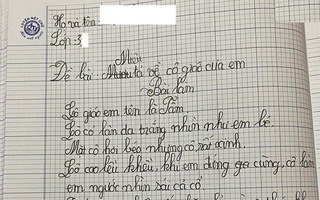 Họ và tên:
Lớp: 3
Miêu
Đề bài: tả về cô giáo của em
Bài làm
Cô giáo em tên là Tấm.
Cô có làn da trắng nhìn như em bé.
Mặt cô hơi béo nhưng cô rất xinh.
Cô cao lêu khêu, khi em đứng gần cũng, cô làm
em ngước nhìn sái cả cổ.